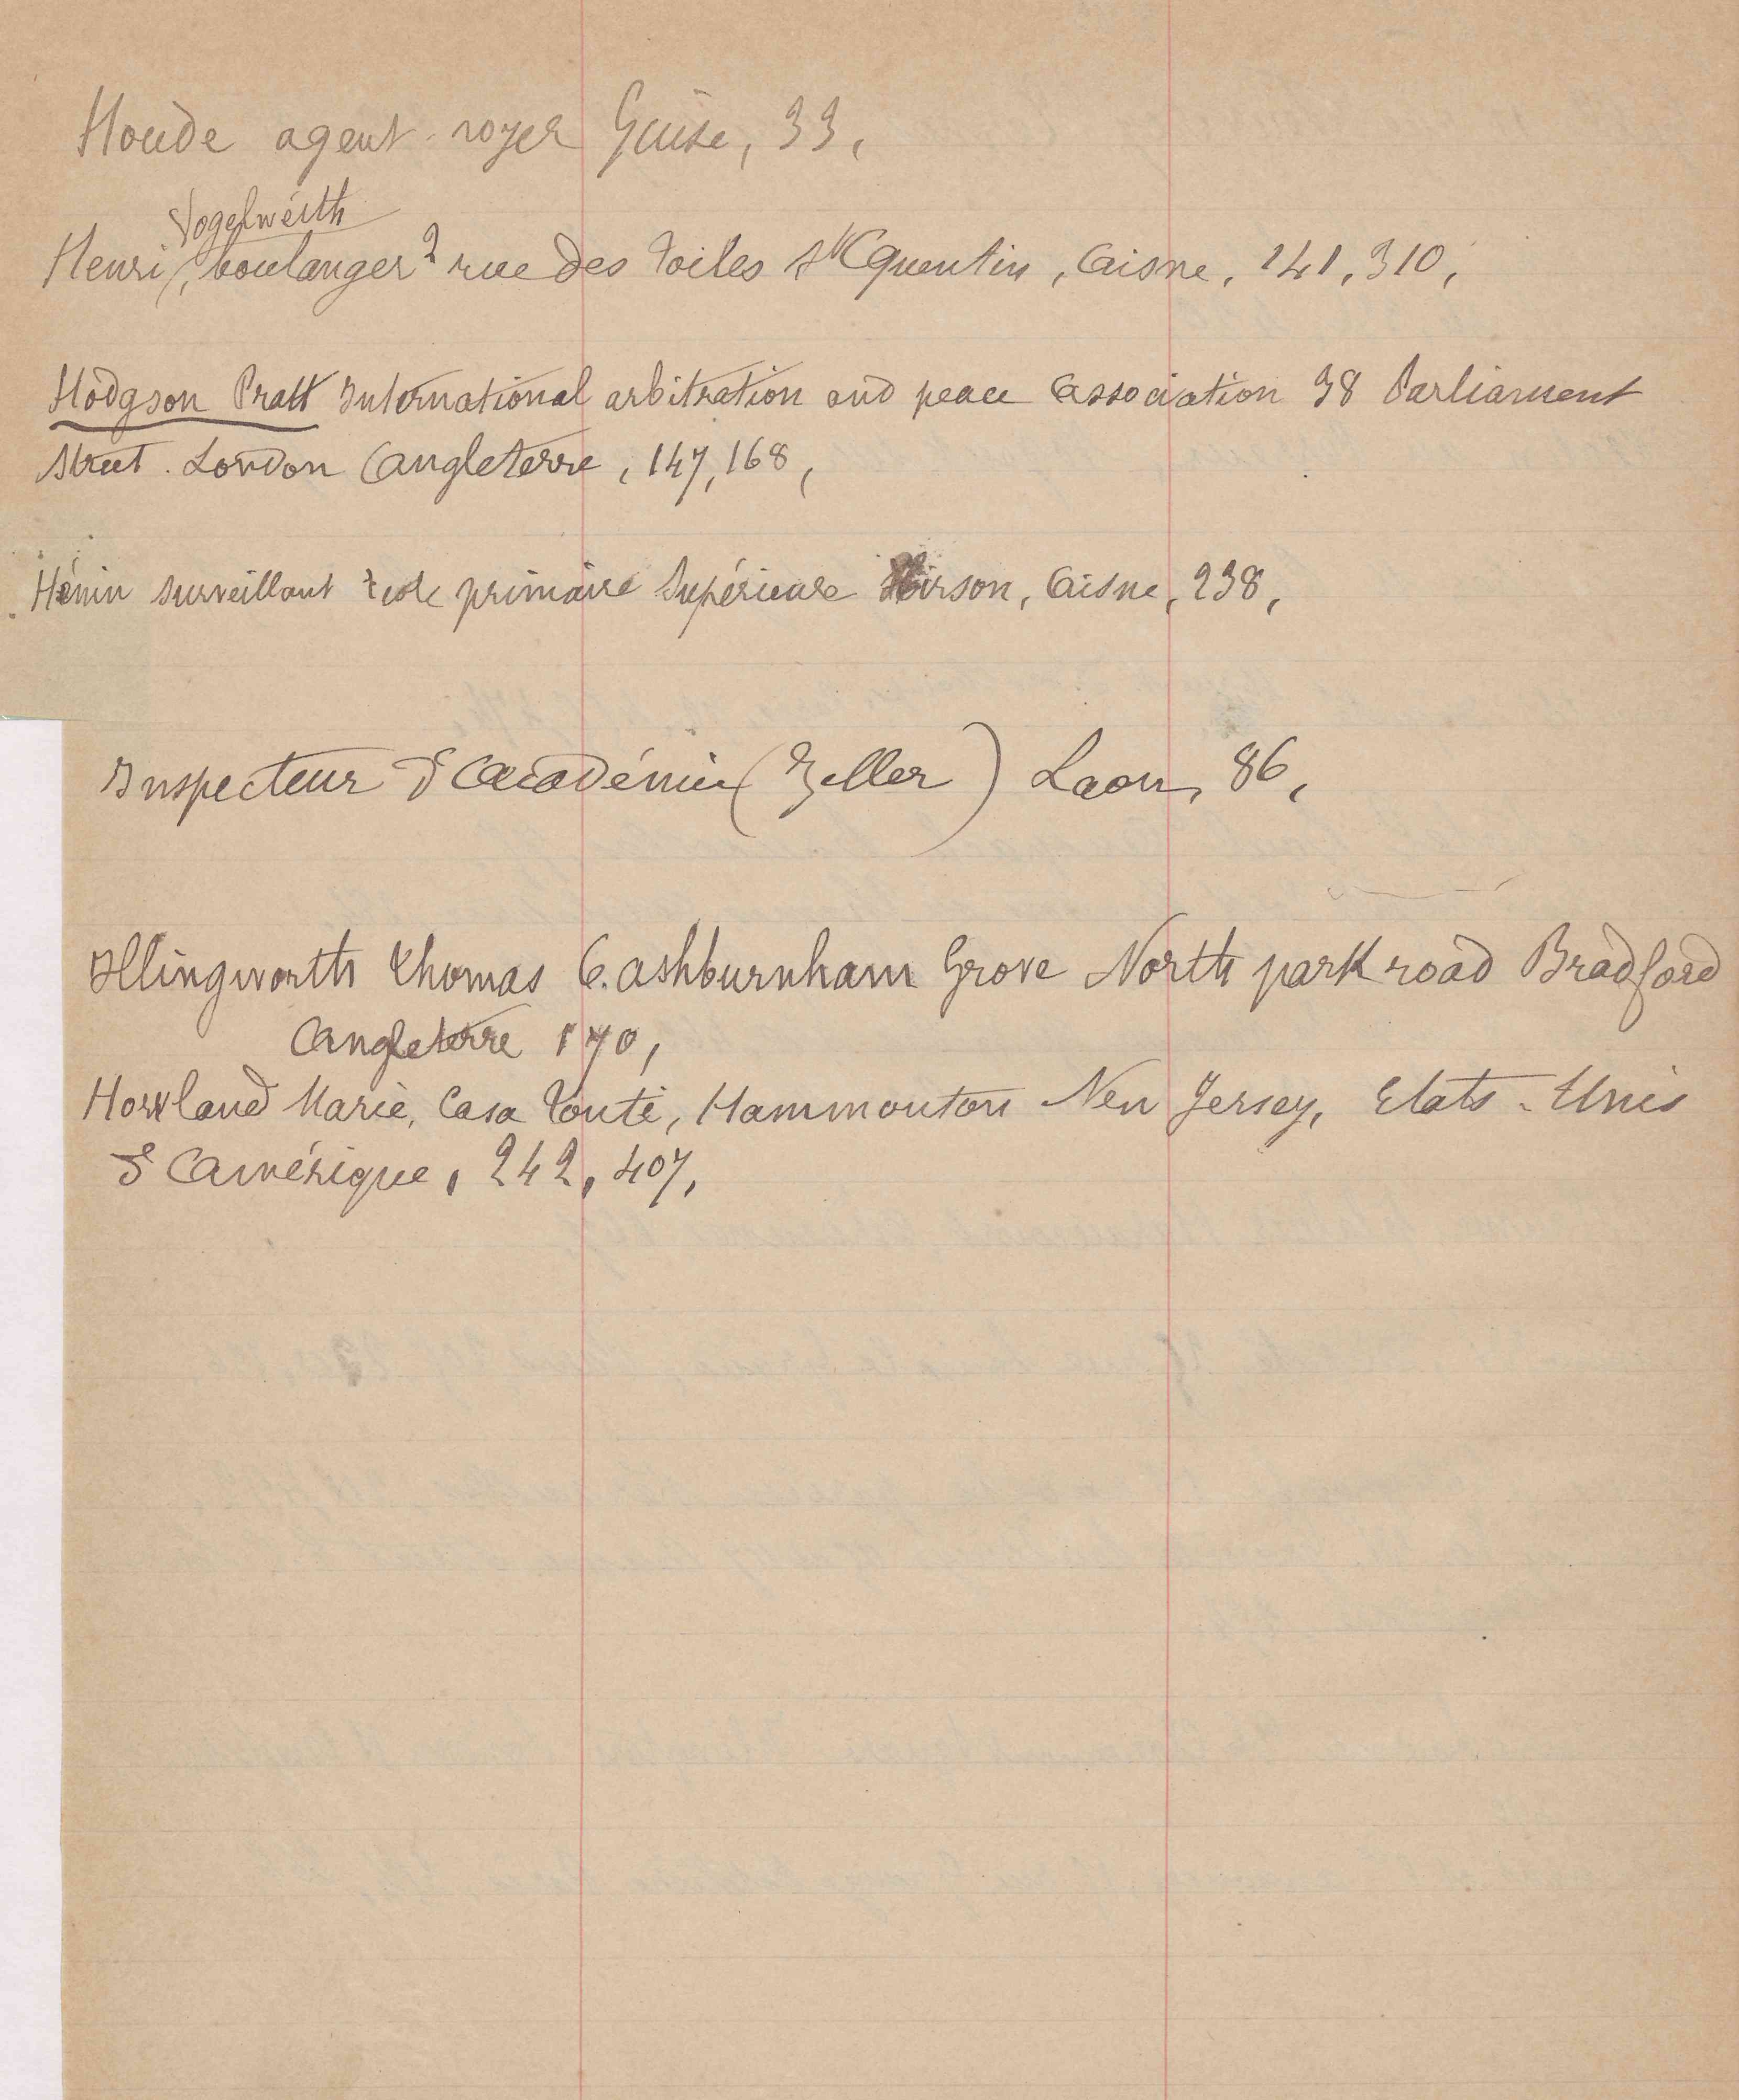 Houde agent-voyer Guise, 33,
Vogelweith
Henri, boulanger 2 rue des Toiles St Quentin, Aisne, 141, 310,
Hodgson Pratt International arbitration and peace association 38 Parliament
street. London Angleterre, 147, 168,
Hénin surveillant école primaire supérieure Hirson, Aisne, 238,
Inspecteur d'Académie (Zeller) Laon, 86,
Illingworth Thomas 6. ashburnham Grove North park road Bradford
Angleterre 170,
Howland Marie, Casa Tonti, Hammonton New Jersey, Etats-Unis
d'Amérique, 242, 407,